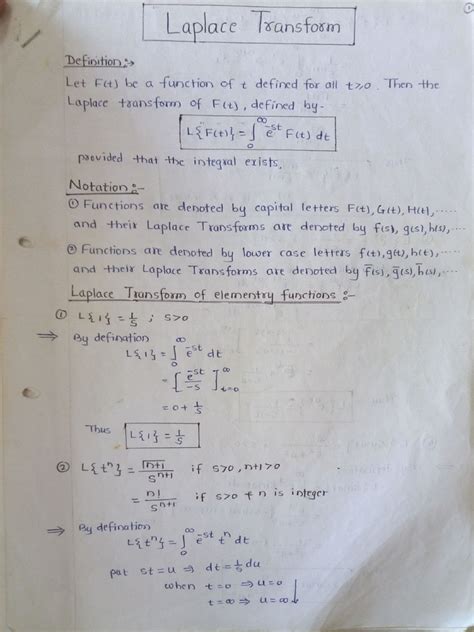 ①
Laplace Transform
Definition :→
Let F(t) be a function of t defined for all t≥0. Then the
Laplace transform of F(t), defined by-
L{F(t)} = ∫₀^∞ e^{-st} F(t) dt
provided that the integral exists.
Notation :-
① Functions are denoted by capital letters F(t), G(t), H(t), .....
and their Laplace Transforms are denoted by f(s), g(s), h(s), ...
② Functions are denoted by lower case letters f(t), g(t), h(t), ...
and their Laplace Transforms are denoted by f̄(s), ḡ(s), h̄(s), ...
Laplace Transform of elementry functions :-
① L{1} = 1/s ; s>0
⇒ By defination
L{1} = ∫₀^∞ e^{-st} dt
= [e^{-st}/-s]_{t=0}^∞
= 0 + 1/s
Thus L{1} = 1/s
② L{tⁿ} = Γn+1/s^{n+1} if s>0, n+1>0
= n!/s^{n+1} if s>0 & n is integer
⇒ By defination
L{tⁿ} = ∫₀^∞ e^{-st} tⁿ dt
put st = u ⇒ dt = 1/s du
when t=0 ⇒ u=0
t=∞ ⇒ u=∞ ↓